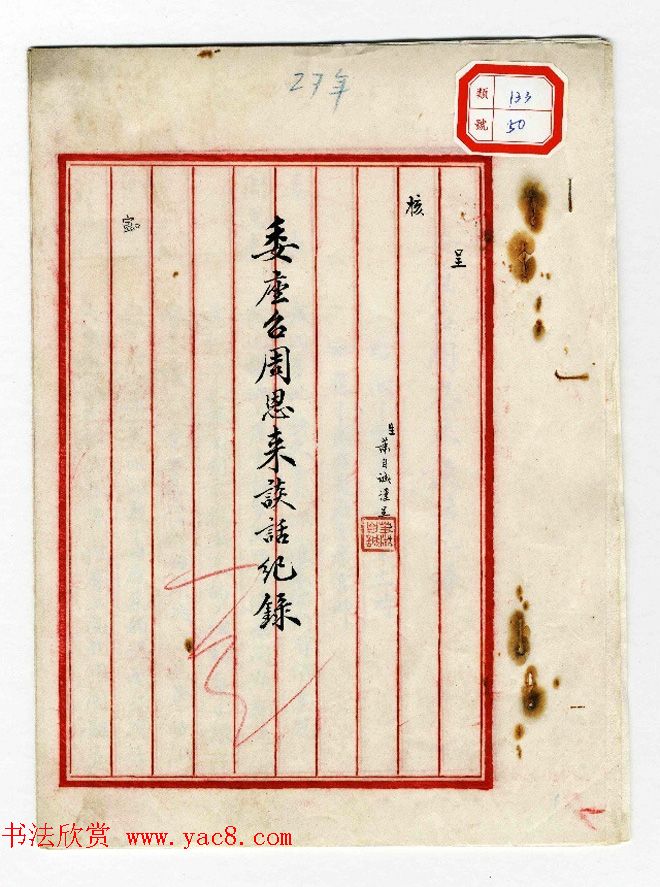 27年
類 133
號 50
呈
核
生 葉自誠謹呈
委座召周恩来談話紀錄
密
书法欣赏 www.yac8.com